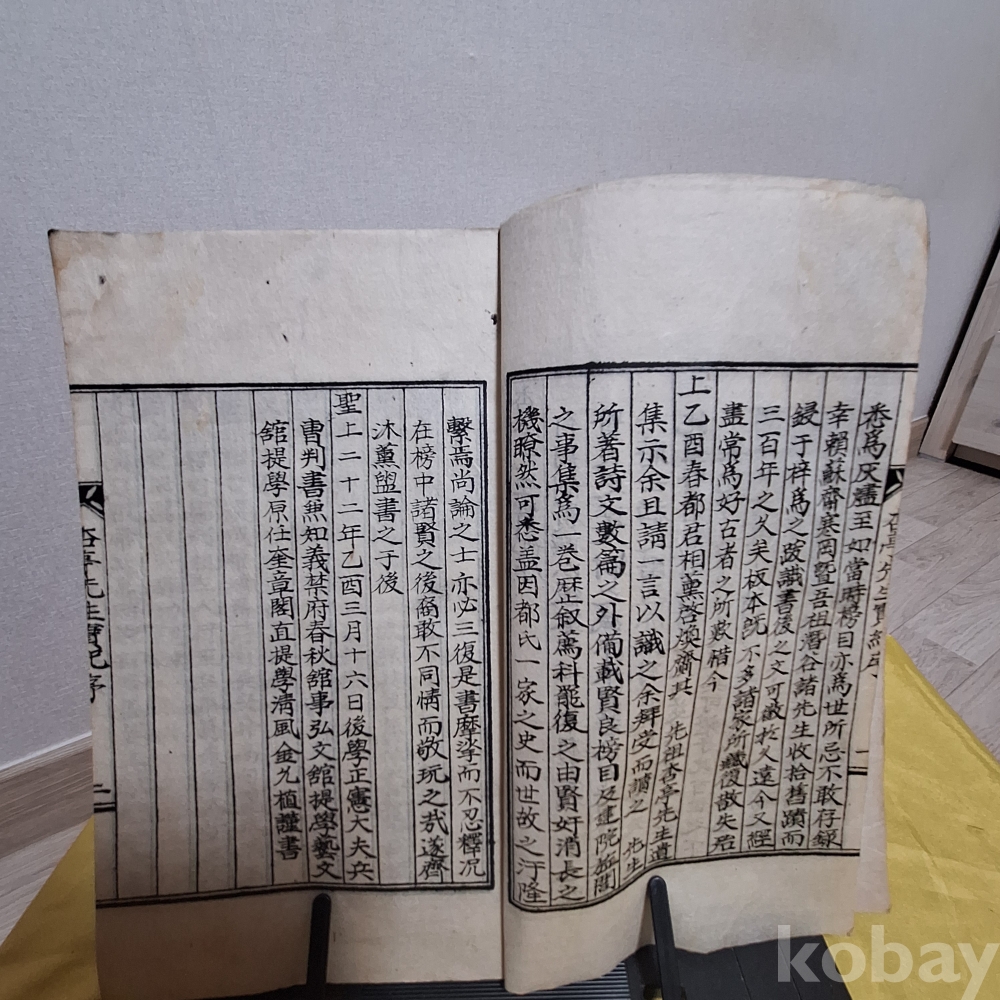 悉爲灰燼至如當時榜目亦爲世所忌不敢存錄
幸賴蘇齋襄西曁吾祖潛谷諸先生收拾舊蹟而
鋟于梓爲之疏識書後之文可徵於久遠今又經
三百年之久矣板本旣不多諸家所藏復散失殆
盡常爲好古者之所歎惜今
上乙酉春都君相熏啓煥齎其 先祖杏亭先生遺
集示余且請一言以識之余拜受而讀之 先生
所著詩文數篇之外備載賢良榜目及建院
之事集爲一卷歷叙薦科罷復之由賢奸消長之
機瞭然可悉盖因都氏一家之史而世故之汙隆
繫焉尚論之士亦必三復是書摩挲而不忍釋况
在榜中諸賢之後裔敢不同情而敬玩之哉遂齊
沐薰盥書之于後
聖上二十二年乙酉三月十六日後學正憲大夫兵
曺判書兼知義禁府春秋舘事弘文舘提學藝文
舘提學原任奎章閣直提學淸風金允植謹書
杏亭先生實紀序
二
kobay